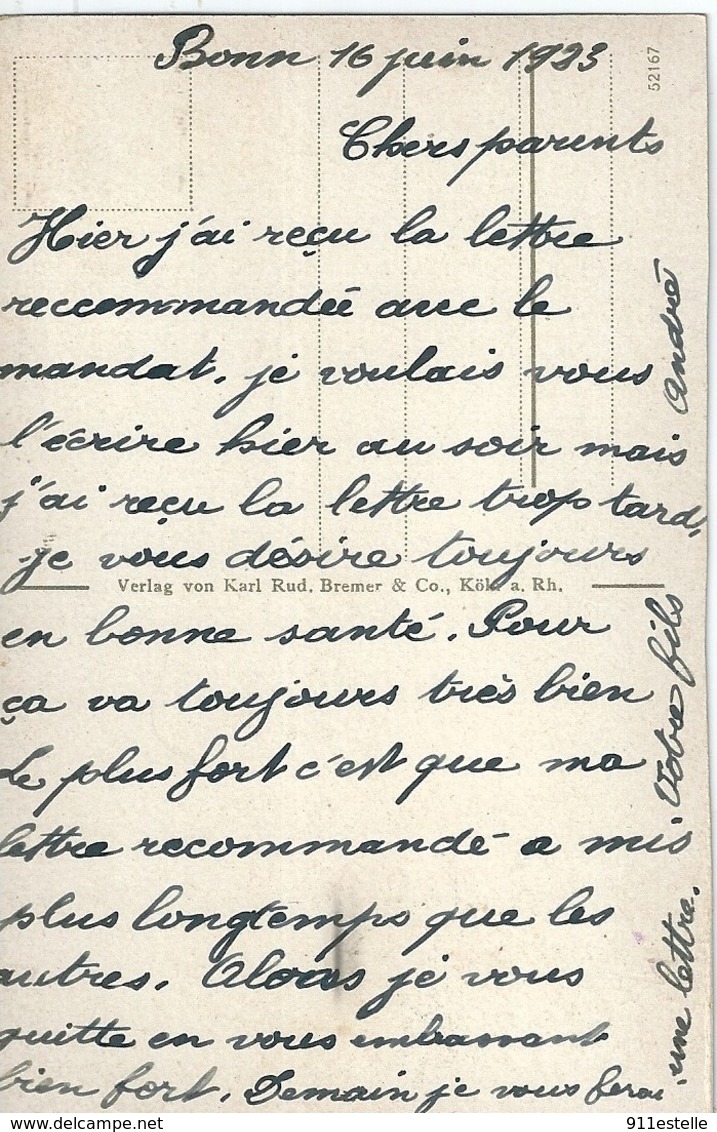 Bonn 16 juin 1923
52167
Chers parents
Hier j'ai reçu la lettre
reccommandée avec le
mandat. je voulais vous
l'écrire hier au soir mais
j'ai reçu la lettre trop tard,
je vous désire toujours
Verlag von Karl Rud. Bremer & Co., Köln a. Rh.
en bonne santé. Pour
ça va toujours très bien
Le plus fort c'est que ma
lettre recommandé a mis
plus longtemps que les
autres. Alors je vous
quitte en vous embrassant
bien fort. Demain je vous ferai
une lettre.
Votre fils
André
911estelle